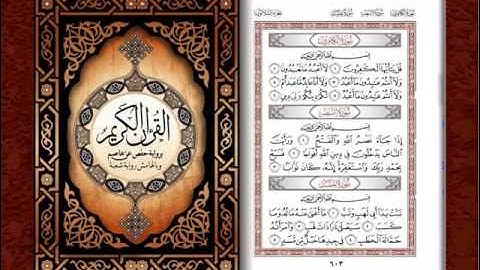 القرآن الكريم
برواية حفص عن عاصم
وبالهامش رواية شعبة
سُورَةُ الكَافِرُونَ
بِسْمِ اللَّهِ الرَّحْمَٰنِ الرَّحِيمِ
قُلْ يَٰٓأَيُّهَا ٱلْكَٰفِرُونَ ١ لَآ أَعْبُدُ مَا تَعْبُدُونَ ٢
وَلَآ أَنتُمْ عَٰبِدُونَ مَآ أَعْبُدُ ٣ وَلَآ أَنَا۠ عَابِدٌ مَّا عَبَدتُّمْ ٤
وَلَآ أَنتُمْ عَٰبِدُونَ مَآ أَعْبُدُ ٥ لَكُمْ دِينُكُمْ وَلِىَ دِينِ ٦
سُورَةُ النَّصْرِ
بِسْمِ اللَّهِ الرَّحْمَٰنِ الرَّحِيمِ
إِذَا جَآءَ نَصْرُ ٱللَّهِ وَٱلْفَتْحُ ١ وَرَأَيْتَ
ٱلنَّاسَ يَدْخُلُونَ فِى دِينِ ٱللَّهِ أَفْوَاجًا ٢ فَسَبِّحْ
بِحَمْدِ رَبِّكَ وَٱسْتَغْفِرْهُ إِنَّهُۥ كَانَ تَوَّابًۢا ٣
سُورَةُ المَسَدِ
بِسْمِ اللَّهِ الرَّحْمَٰنِ الرَّحِيمِ
تَبَّتْ يَدَآ أَبِى لَهَبٍ وَتَبَّ ١ مَآ أَغْنَىٰ عَنْهُ مَالُهُۥ وَمَا
كَسَبَ ٢ سَيَصْلَىٰ نَارًا ذَاتَ لَهَبٍ ٣ وَٱمْرَأَتُهُۥ
حَمَّالَةَ ٱلْحَطَبِ ٤ فِى جِيدِهَا حَبْلٌ مِّن مَّسَدٍۭ ٥
٦٠٣